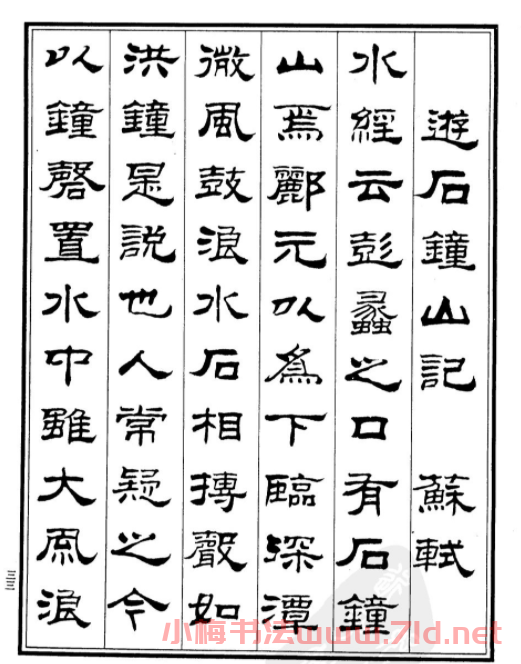 遊石鐘山記 蘇軾
水經云彭蠡之口有石鐘
山焉酈元以爲下臨深潭
微風鼓浪水石相搏聲如
洪鐘是說也人常疑之今
以鐘磬置水中雖大風浪
三三
小梅书法www.7ld.net